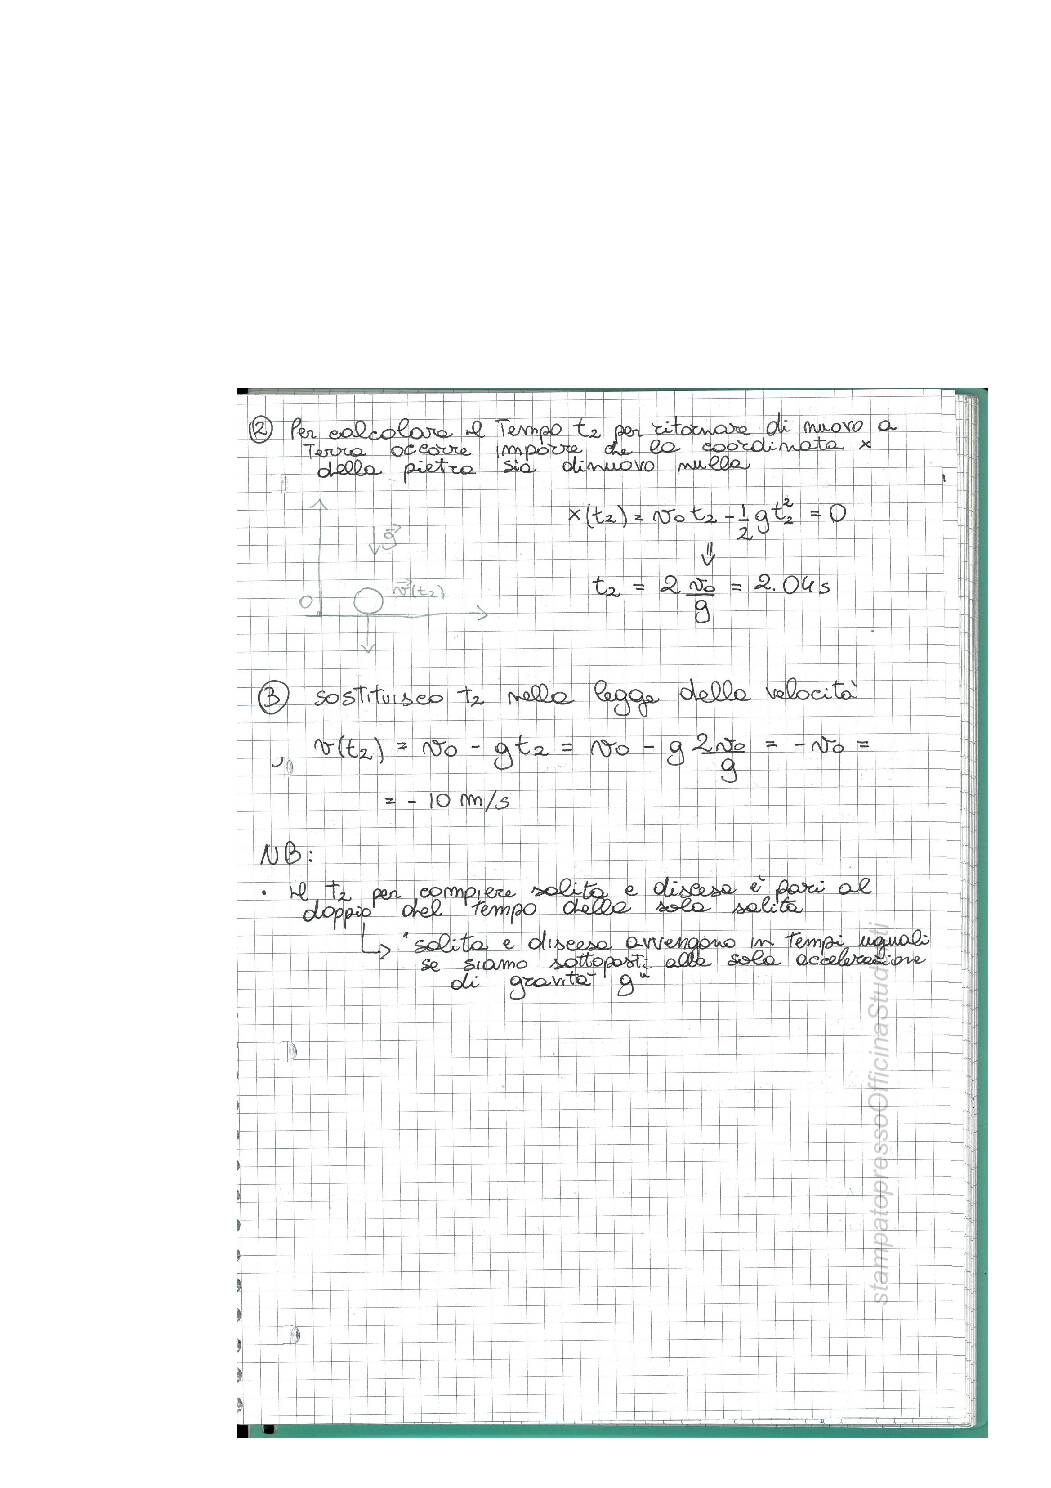 ② Per calcolare il Tempo t₂ per ritornare di nuovo a
Terra occorre imporre che la coordinata x
della pietra sia dinuovo nulla
x(t₂) = v₀ t₂ - 1/2 g t₂² = 0
⇓
g⃗
v⃗(t₂)
O
t₂ = 2 v₀/g = 2.04 s
③ sostituisco t₂ nella legge della velocità
v(t₂) = v₀ - g t₂ = v₀ - g 2v₀/g = - v₀ =
= - 10 m/s
NB:
• il t₂ per compiere salita e discesa è pari al
doppio del tempo della sola salita
↳ "salita e discesa avvengono in tempi uguali
se siamo sottoposti alla sola accelerazione
di gravità g"
stampatopressoOfficinaStudenti